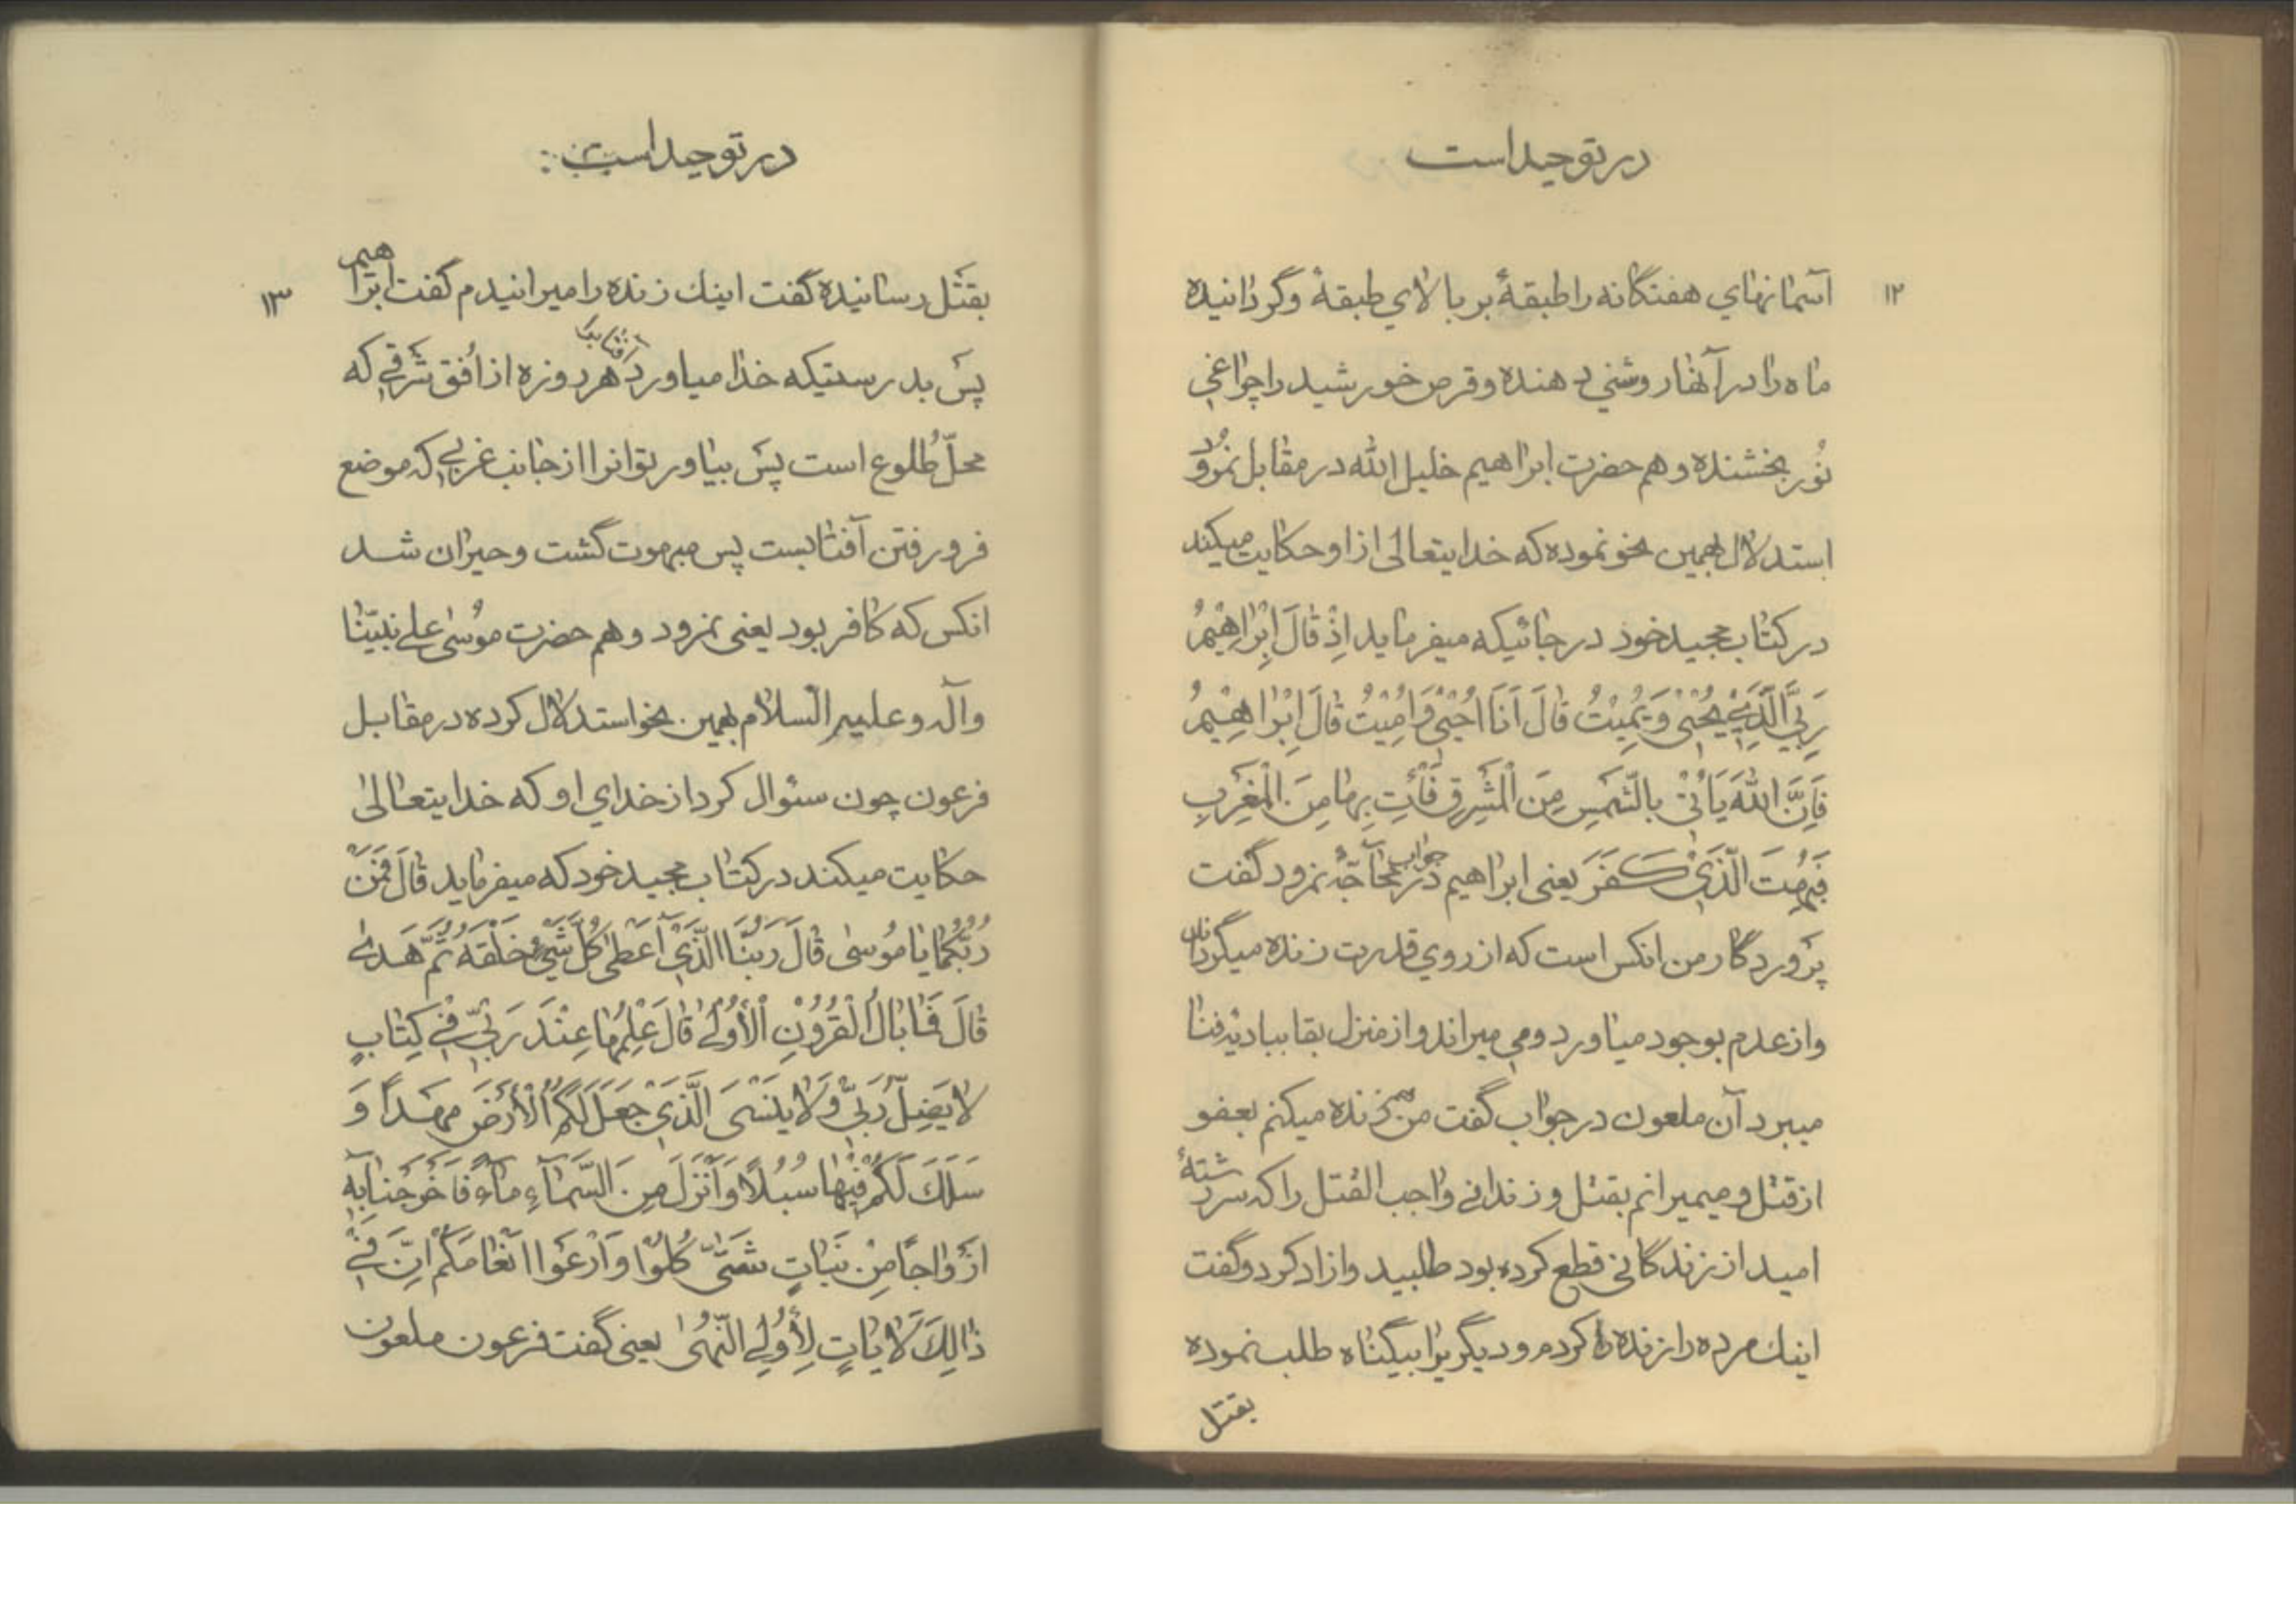 در توحید است
۱۲
آسمانهای هفتگانه را طبقهٔ بر بالای طبقهٔ وگردانیده
ماه را در آنها روشنی دهنده وقرص خورشید را چراغی
نُور بخشنده وهم حضرت ابراهیم خلیل الله در مقابل نمرُود
استدلال بهمین نحو نموده که خدایتعالی ازاو حکایت میکند
در کتاب مجید خود در جائیکه میفرماید اِذْ قالَ اِبْراهیمُ
رَبِّیَ الَّذی یُحْیی وَ یُمیتُ قالَ اَنَا اُحْیی وَ اُمیتُ قالَ اِبْراهیمُ
فَاِنَّ اللهَ یَأتی بِالشَّمسِ مِنَ الْمَشْرِقِ فَأتِ بِها مِنَ الْمَغْرِبِ
فَبُهِتَ الَّذی کَفَرَ یعنی ابراهیم در جواب محآجّهٔ نمرود گفت
پَروردگار من انکس است که از روی قدرت زنده میگرداند
واز عدم بوجود میاورد ومی میراند واز منزل بقا ببادیهٔ فنا
میبرد آن ملعون در جواب گفت من هم زنده میکنم بعفو
از قتل و میمیرانم بقتل و زندانی واجب القتل را که سررشتهٔ
امید از زندگانی قطع کرده بود طلبید وازاد کرد وگفت
اینك مرده را زنده کردم و دیگریرا بیگناه طلب نموده
بقتل
در توحید است
۱۳
بقتل رسانیده گفت اینك زنده را میرانیدم گفت ابراهیم
پس بدرستیکه خدا میاورد آفتاب را هر روزه از اُفق شرقی که
محلّ طُلوع است پس بیاور تو انرا از جانب غربی که موضع
فرورفتن آفتابست پس مبهوت گشت و حیران شد
انکس که کافر بود یعنی نمرود وهم حضرت موُسی علی نبیّنا
وآله و علیه السّلام بهمین نحو استدلال کرده در مقابل
فرعون چون سئوال کرد از خدای او که خدایتعالی
حکایت میکند در کتاب مجید خود که میفرماید قالَ فَمَنْ
رَبُّکُما یا مُوسی قالَ رَبُّنَا الَّذی اَعْطی کُلَّ شَیْءٍ خَلْقَهُ ثُمَّ هَدی
قالَ فَما بالُ الْقُرُونِ الْأُولی قالَ عِلْمُها عِنْدَ رَبّی فی کِتابٍ
لا یَضِلُّ رَبّی وَ لا یَنْسَی الَّذی جَعَلَ لَکُمُ الْأَرْضَ مَهْداً وَ
سَلَكَ لَکُمْ فیها سُبُلًا وَ اَنْزَلَ مِنَ السَّمآءِ مآءً فَاَخْرَجْنا بِهِ
اَزْواجًا مِنْ نَباتٍ شَتّی کُلُوا وَ ارْعَوْا اَنْعامَکُمْ اِنَّ فی
ذالِكَ لَایاتٍ لِأُولِی النُّهی یعنی گفت فرعون ملعون